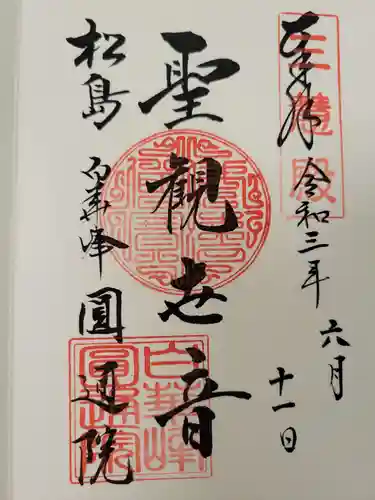 奉拝
令和三年
六月
十一日
聖観世音
松島
白華峰
圓通院
三慧殿
白華峰
圓通院